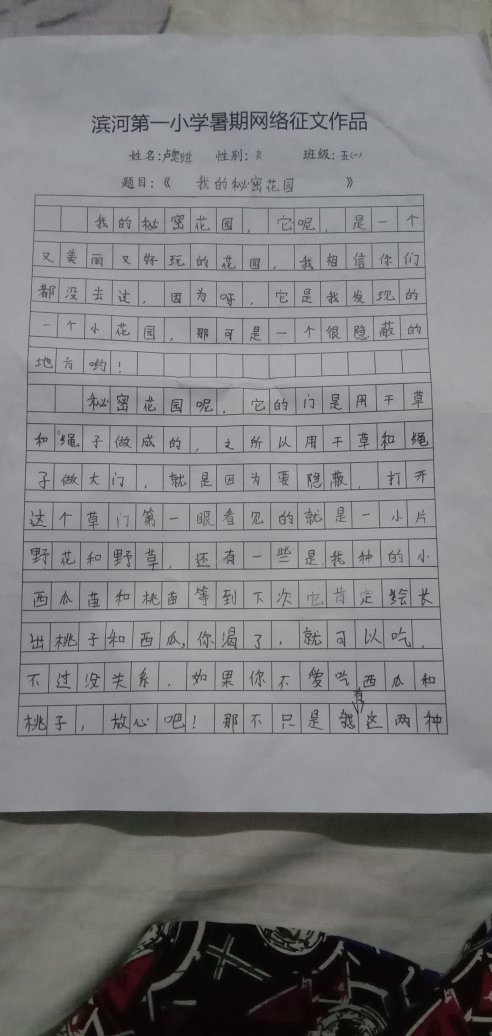 滨河第一小学暑期网络征文作品
姓名: 性别: 班级:五(一)
题目:《 我的秘密花园 》
我的秘密花园,它呢,是一个
又美丽又好玩的花园,我相信你们
都没去过,因为呀,它是我发现的
一个小花园,那可是一个很隐蔽的
地方哟!
秘密花园呢,它的门是用干草
和绳子做成的,之所以用干草和绳
子做大门,就是因为要隐蔽,打开
这个草门第一眼看见的就是一小片
野花和野草,还有一些是我种的小
西瓜苗和桃苗等到下次它肯定会长
出桃子和西瓜,你渴了,就可以吃,
不过没关系,如果你不爱吃西瓜和
桃子,放心吧!那不只是就有这两种